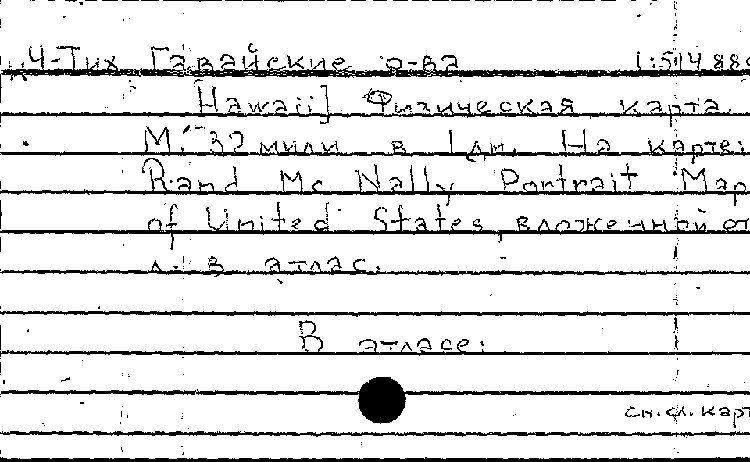 Ч-Тих Гавайские о-ва 1:514 88
Hawaii] Физическая карта.
М. 32 мили в 1 дм. На карте:
Rand Mc Nally Portrait Map
of United States, вложенной от
л. в атлас.
В атласе:
см. сл. карт